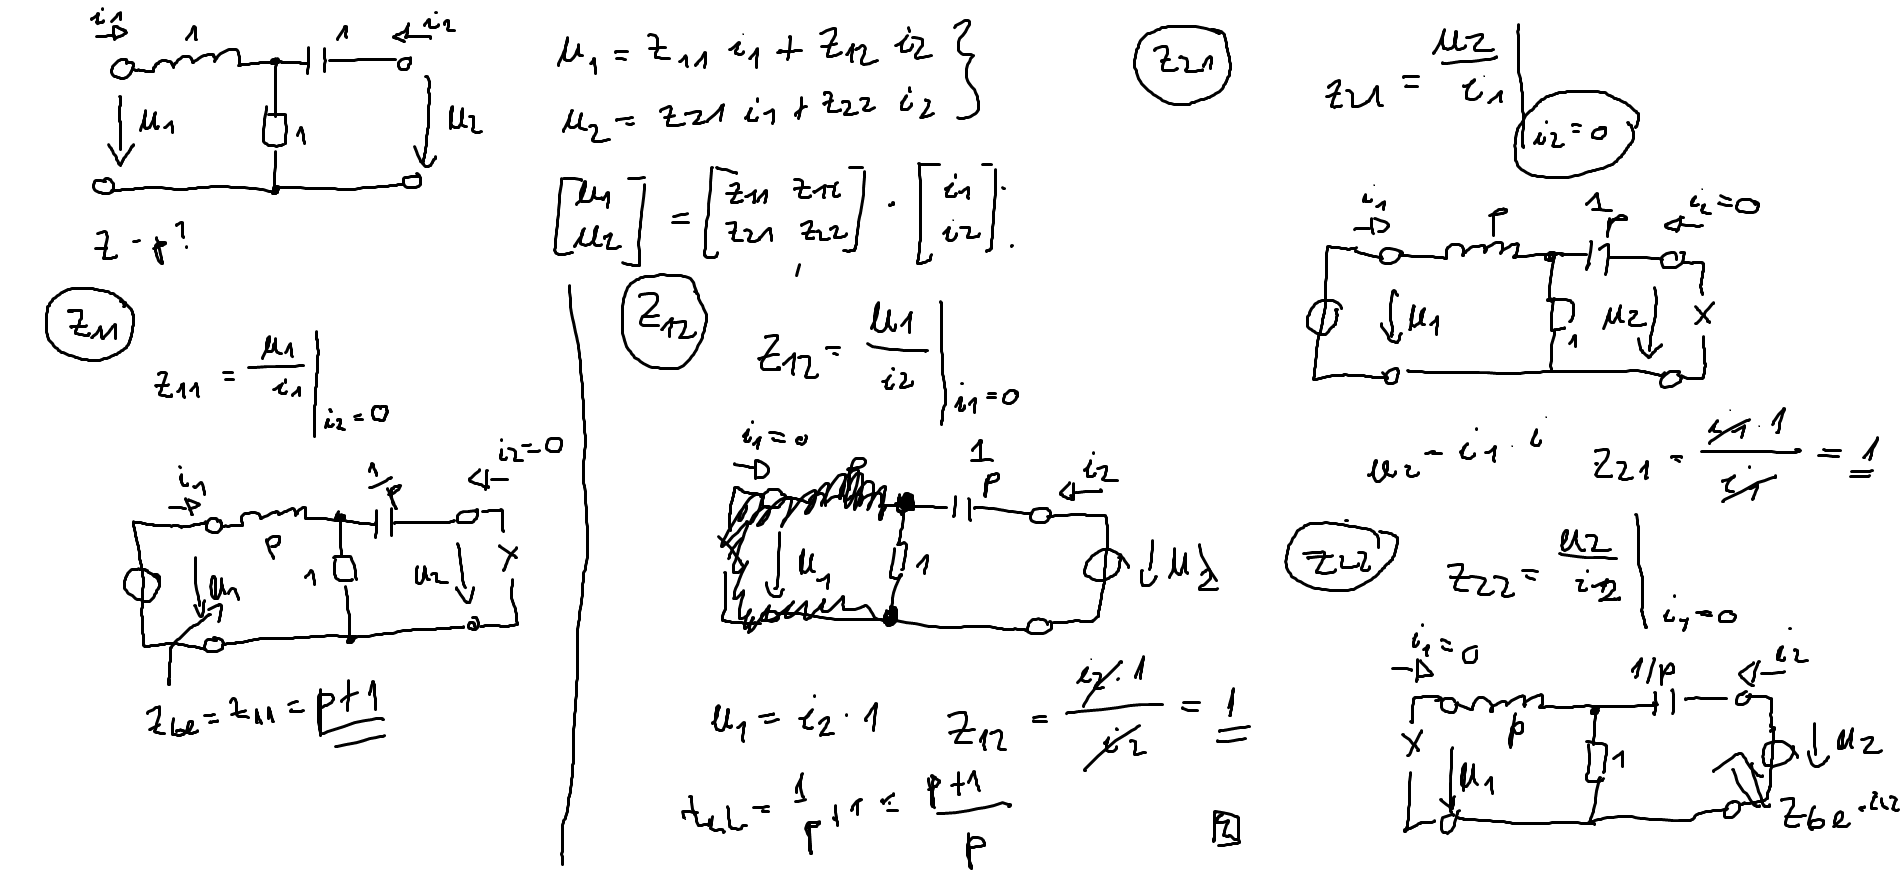 i1
1
1
i2
u1
1
u2
z - p?
u1 = z11 i1 + z12 i2 }
u2 = z21 i1 + z22 i2
[u1 u2] = [z11 z12 z21 z22] · [i1 i2].
z11
z11 = u1/i1 | i2=0
i1
1/p
i2=0
p
1
u1
u2
zbe = z11 = p+1
z12
z12 = u1/i2 | i1=0
i1=0
p
1/p
i2
u1
1
u2
u1 = i2 · 1
z12 = i2·1/i2 = 1
= 1/p + 1 = p+1/p
2
z21
z21 = u2/i1 | i2=0
i1
p
1/p
i2=0
u1
1
u2
u2 = i1 · i
z21 = i1·1/i1 = 1
z22
z22 = u2/i2 | i1=0
i1=0
1/p
i2
p
1
u1
u2
zbe = z22